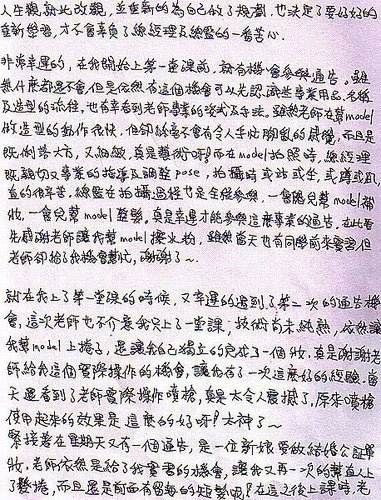 人生觀就此改觀,並重新的為自己做了規劃,也決定了要好好的
重新學習,才不會辜負了總經理及總監的一番苦心。
非常幸運的,在我開始上第一堂課前,就有機會參與通告。雖
然什麼都還不會,但是依然有這個機會可以先認識些專業用品、名稱
及造型的流程,也有幸看到老師專業的姿式及手法。雖然老師在幫model
做造型的動作很快,但卻絲毫不會有令人手忙腳亂的感覺,而且是
既俐落大方,又細緻,真是藝術呀!而在model拍照時,總經理
既親切又專業的指導及調整pose,拍攝時或站或坐,或蹲或趴
真的很辛苦,總監在拍攝過程也是全程參與,一會兒幫model補
妝,一會兒幫model整髮。真是幸運才能參與這麼專業的通告。在此要
先感謝老師讓我幫model擦水粉,雖然當天也有同學前來實習但
老師卻給了我機會幫忙,謝謝了~
就在我上了第一堂課的時候,又幸運的遇到了第二次的通告機
會,這次老師也不介意我只上了一堂課,技術尚未純熟,依然讓
我幫model上捲子,還讓我自己獨立的完成了一個妝,真是謝謝老
師給我這個實際操作的機會,讓我有了一次這麼好的經驗。當
天還看到了老師實際操作噴槍,真是太令人震撼了,原來噴槍
使用起來的效果是這麼的好呀!太神了~
緊接著在星期天又有一個通告,是一位新娘要做結婚公証單
妝,老師依然是給了我寶貴的機會,讓我又再一次的幫真人上
了髮捲,而且還是前面有留